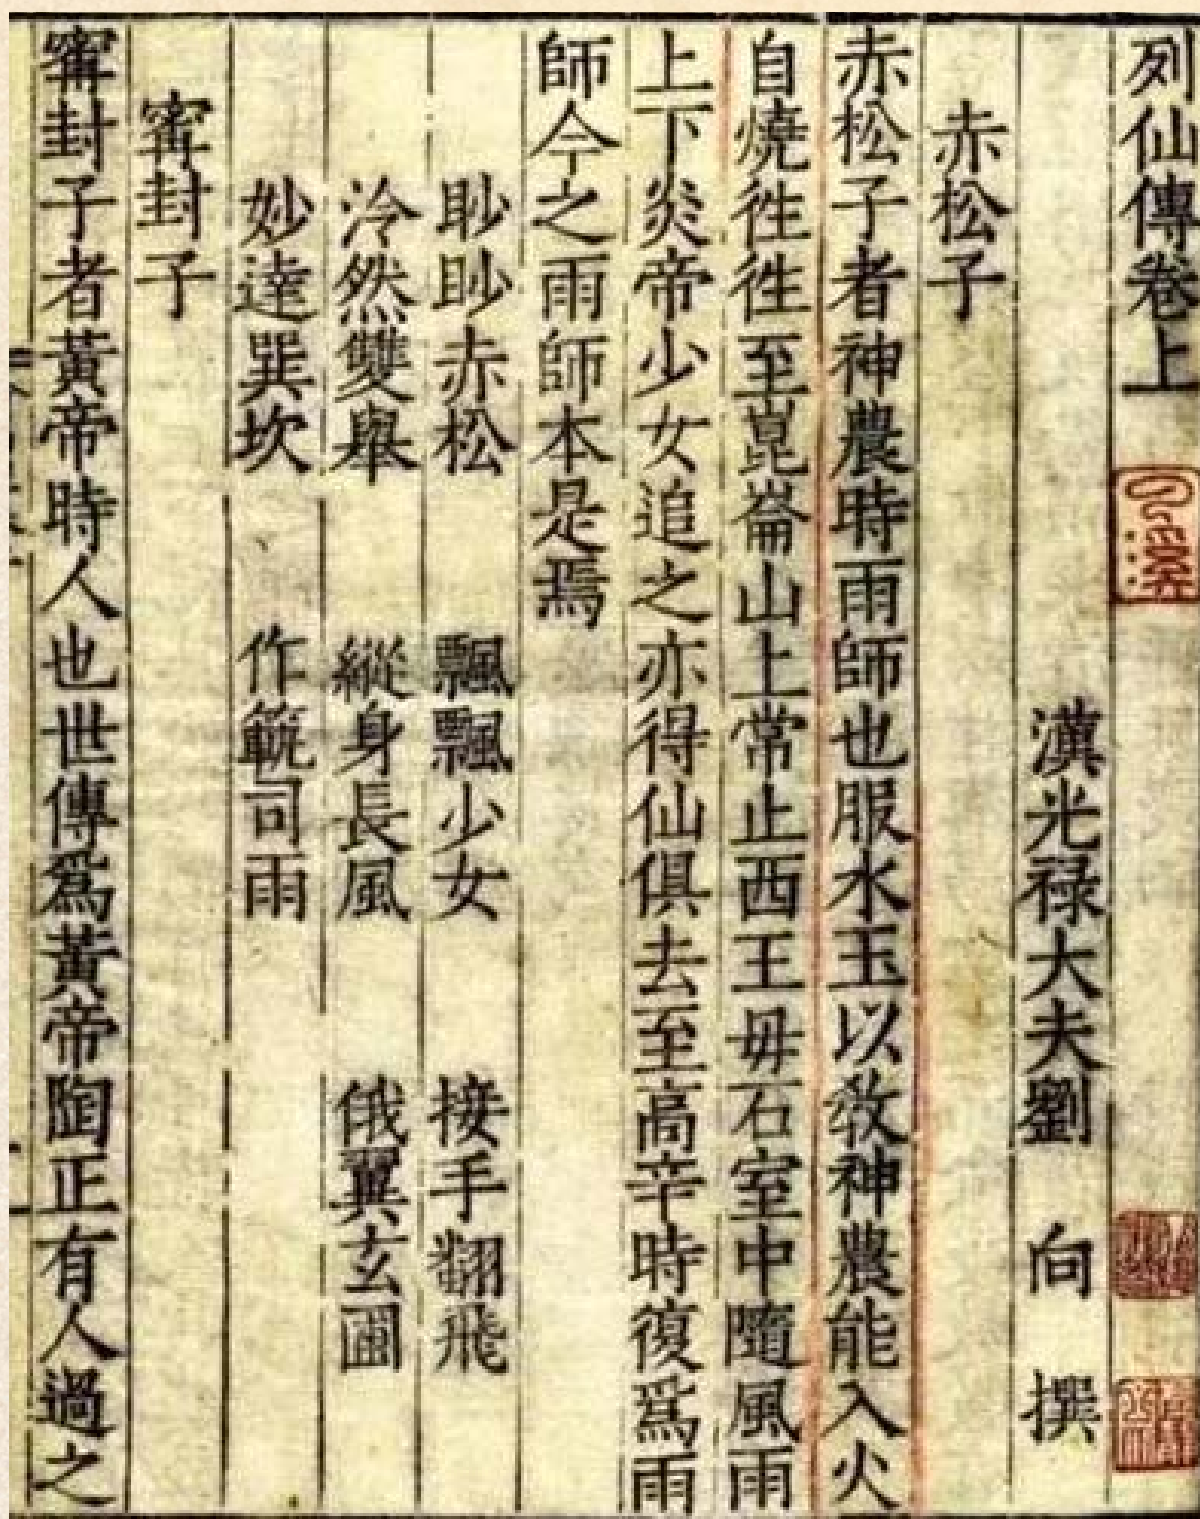 列仙傳卷上
漢光祿大夫劉 向 撰
赤松子
赤松子者神農時雨師也服水玉以敎神農能入火
自燒徃徃至崑崙山上常止西王母石室中隨風雨
上下炎帝少女追之亦得仙俱去至高辛時復爲雨
師今之雨師本是焉
眇眇赤松 飄飄少女 接手翻飛
泠然雙舉 縱身長風 俄翼玄圃
妙達巽坎 作範司雨
甯封子
甯封子者黃帝時人也世傳爲黃帝陶正有人過之